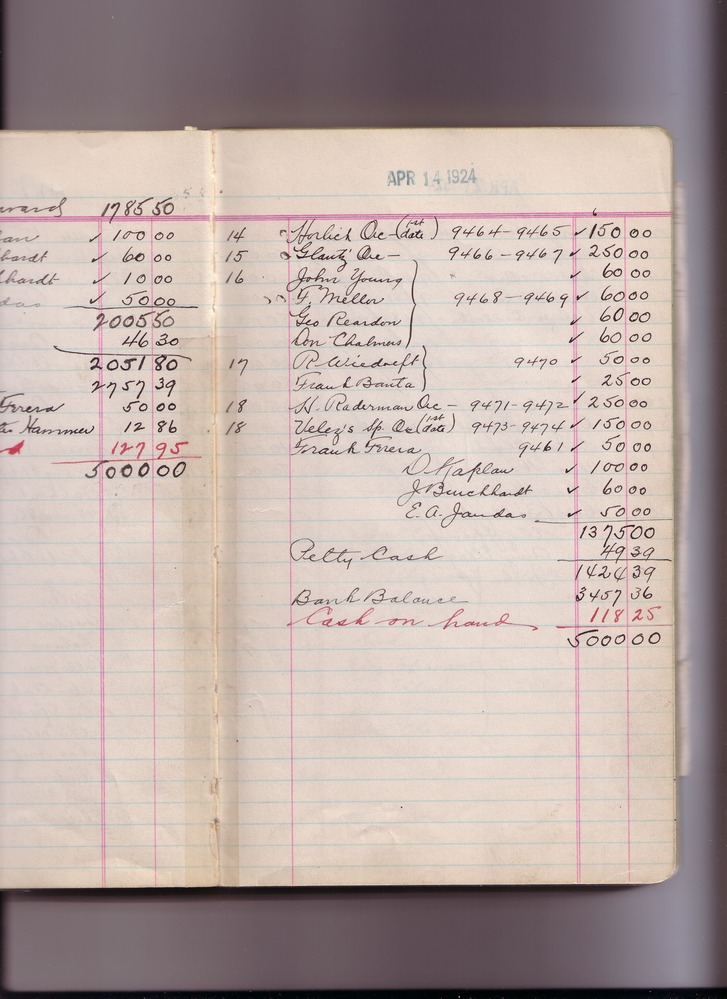 178550
✓ 100 00
✓ 60 00
✓ 10 00
✓ 50 00
200550
46 30
205180
2757 39
50 00
Hammer 12 86
127 95
500000
APR 14 1924
14 Horlick Orc (1st date) 9464-9465 ✓ 150 00
15 Glantz Orc - 9466-9467 ✓ 250 00
16 John Young ✓ 60 00
F. Mellor 9468-9469 ✓ 60 00
Geo Reardon ✓ 60 00
Don Chalmers ✓ 60 00
17 R. Wiedoeft 9470 ✓ 50 00
Frank Banta ✓ 25 00
18 H. Raderman Orc - 9471-9472 ✓ 250 00
18 Velez's Sp. Orc (1st date) 9473-9474 ✓ 150 00
Frank Ferera 9461 ✓ 50 00
D. Kaplan ✓ 100 00
J. Burckhardt ✓ 60 00
E. A. Jandas ✓ 50 00
1375 00
Petty Cash 49 39
1424 39
Bank Balance 3457 36
Cash on hand 118 25
5000 00